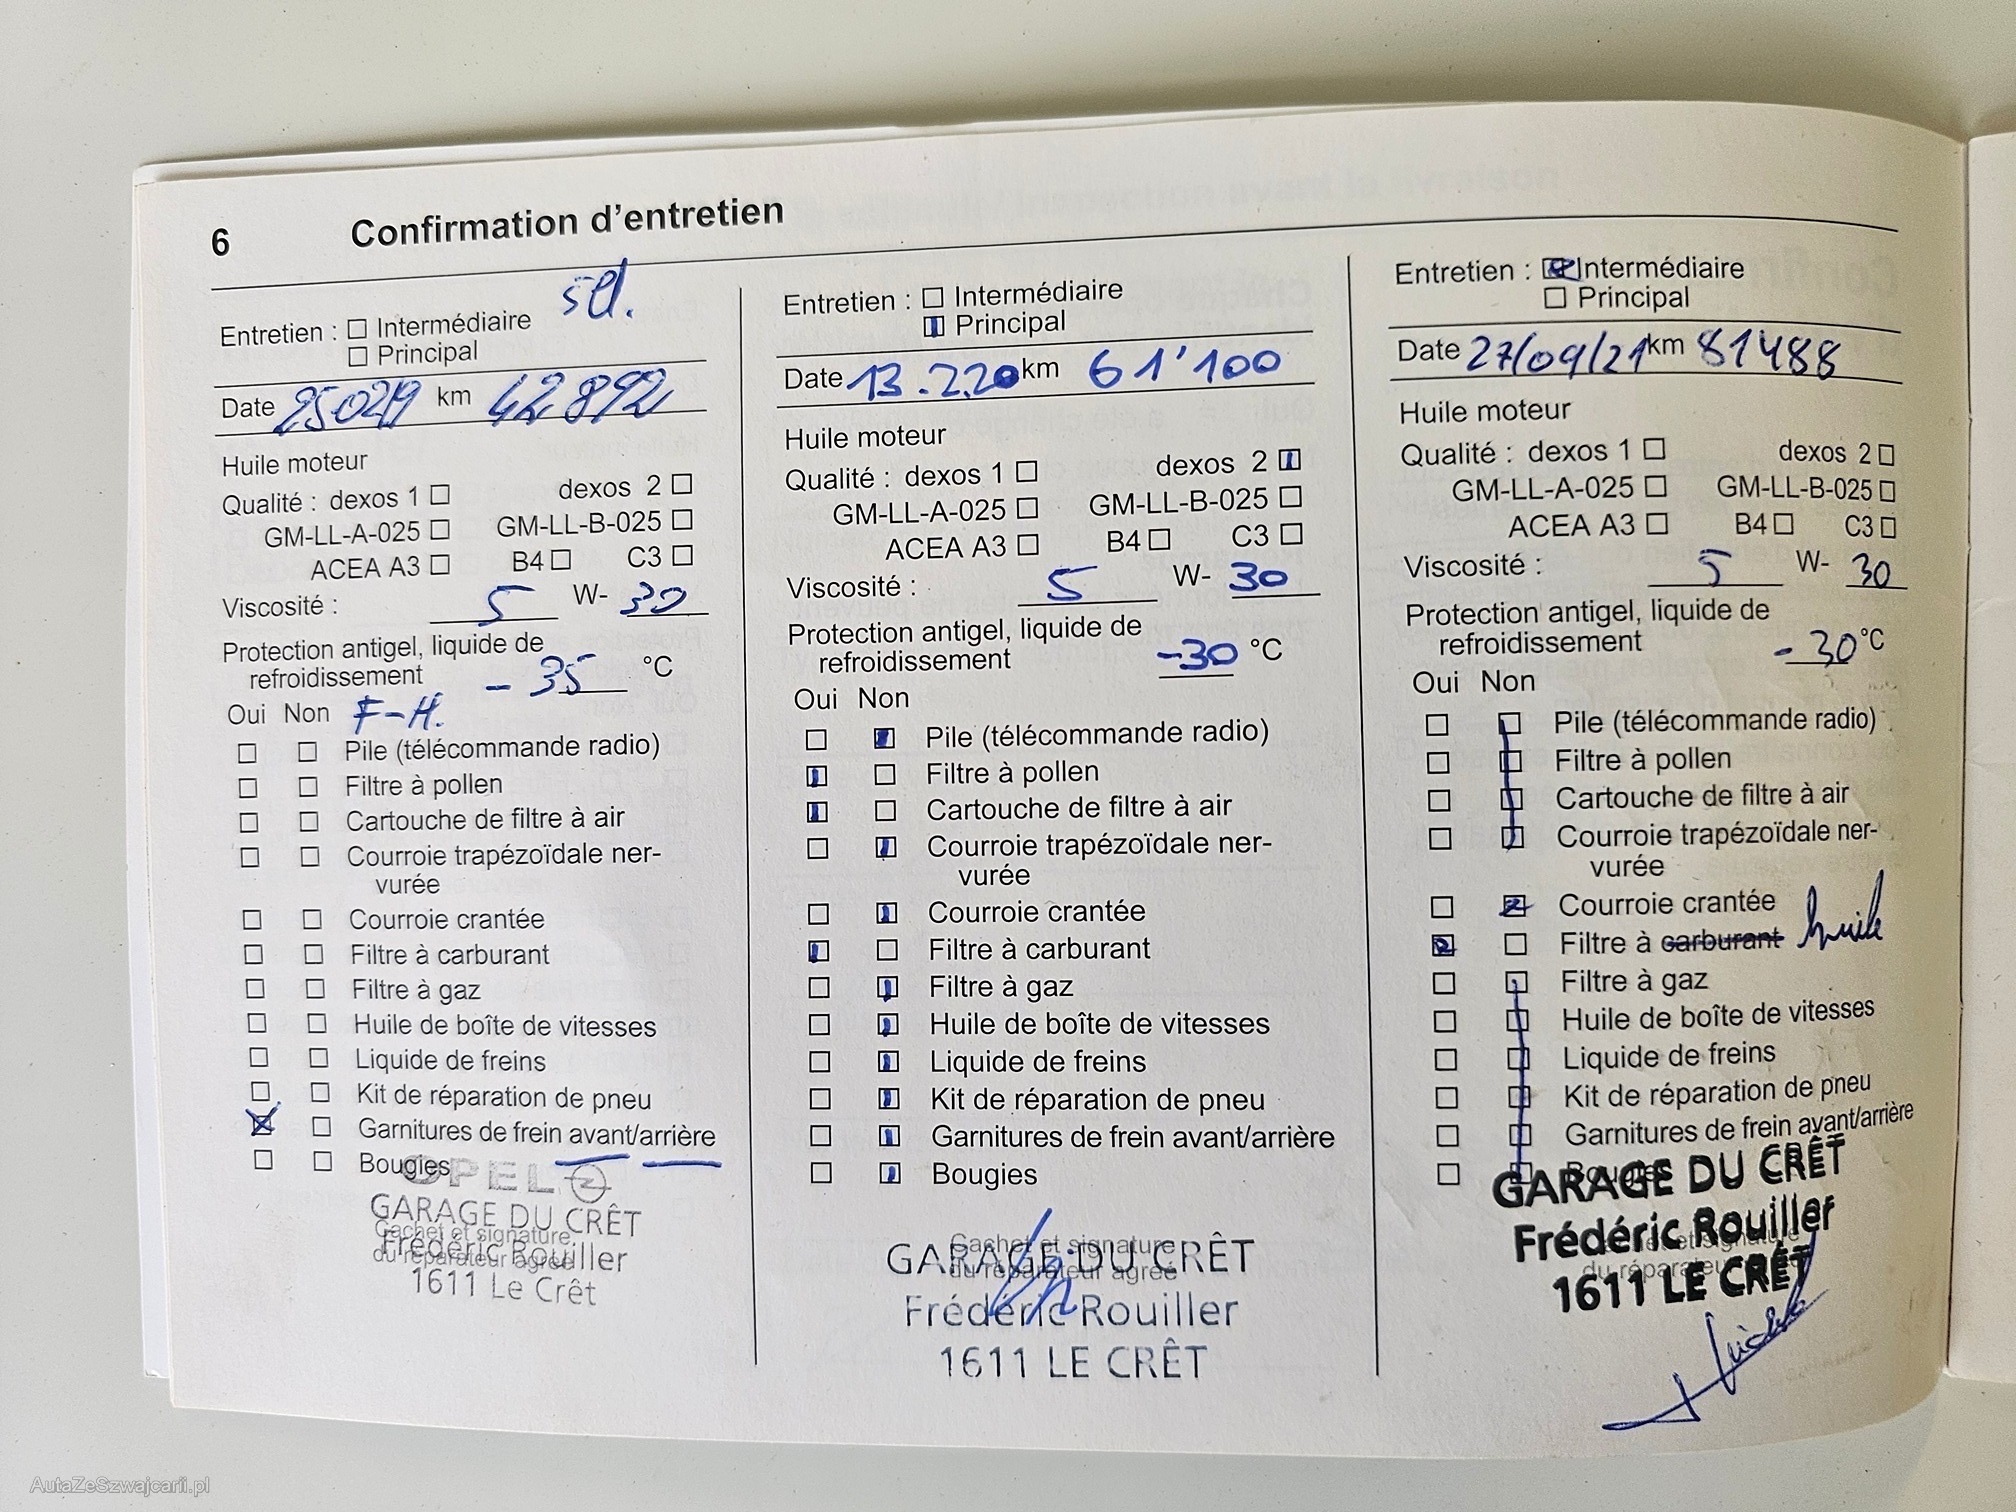 6 Confirmation d'entretien
Entretien : Intermédiaire
Principal
Date 250219 km 42892
Huile moteur
Qualité : dexos 1 dexos 2
GM-LL-A-025 GM-LL-B-025
ACEA A3 B4 C3
Viscosité : 5 W- 30
Protection antigel, liquide de
refroidissement - 35 °C
Oui Non F-H.
Pile (télécommande radio)
Filtre à pollen
Cartouche de filtre à air
Courroie trapézoïdale ner-
vurée
Courroie crantée
Filtre à carburant
Filtre à gaz
Huile de boîte de vitesses
Liquide de freins
Kit de réparation de pneu
Garnitures de frein avant/arrière
Bougies
OPEL
GARAGE DU CRÊT
Cachet et signature
Frédéric Rouiller
du réparateur agréé
1611 Le Crêt
Entretien : Intermédiaire
Principal
Date 13.2.20 km 61'100
Huile moteur
Qualité : dexos 1 dexos 2
GM-LL-A-025 GM-LL-B-025
ACEA A3 B4 C3
Viscosité : 5 W- 30
Protection antigel, liquide de
refroidissement -30 °C
Oui Non
Pile (télécommande radio)
Filtre à pollen
Cartouche de filtre à air
Courroie trapézoïdale ner-
vurée
Courroie crantée
Filtre à carburant
Filtre à gaz
Huile de boîte de vitesses
Liquide de freins
Kit de réparation de pneu
Garnitures de frein avant/arrière
Bougies
Cachet et signature
GARAGE DU CRÊT
du réparateur agréé
Frédéric Rouiller
1611 LE CRÊT
Entretien : Intermédiaire
Principal
Date 27/09/21 km 81488
Huile moteur
Qualité : dexos 1 dexos 2
GM-LL-A-025 GM-LL-B-025
ACEA A3 B4 C3
Viscosité : 5 W- 30
Protection antigel, liquide de
refroidissement - 30 °C
Oui Non
Pile (télécommande radio)
Filtre à pollen
Cartouche de filtre à air
Courroie trapézoïdale ner-
vurée
Courroie crantée
Filtre à carburant huile
Filtre à gaz
Huile de boîte de vitesses
Liquide de freins
Kit de réparation de pneu
Garnitures de frein avant/arrière
Bougies
GARAGE DU CRÊT
Frédéric Rouiller
1611 LE CRÊT
AutaZeSzwajcarii.pl